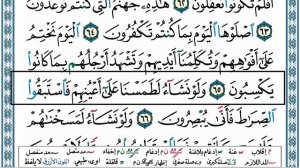 أَفَلَمْ تَكُونُوا۟ تَعْقِلُونَ ﴿٦٢﴾ هَـٰذِهِۦ جَهَنَّمُ ٱلَّتِى كُنتُمْ تُوعَدُونَ
﴿٦٣﴾ ٱصْلَوْهَا ٱلْيَوْمَ بِمَا كُنتُمْ تَكْفُرُونَ ﴿٦٤﴾ ٱلْيَوْمَ نَخْتِمُ
عَلَىٰٓ أَفْوَٰهِهِمْ وَتُكَلِّمُنَآ أَيْدِيهِمْ وَتَشْهَدُ أَرْجُلُهُم بِمَا كَانُوا۟
يَكْسِبُونَ ﴿٦٥﴾ وَلَوْ نَشَآءُ لَطَمَسْنَا عَلَىٰٓ أَعْيُنِهِمْ فَٱسْتَبَقُوا۟
ٱلصِّرَٰطَ فَأَنَّىٰ يُبْصِرُونَ ﴿٦٦﴾ وَلَوْ نَشَآءُ لَمَسَخْنَـٰهُمْ